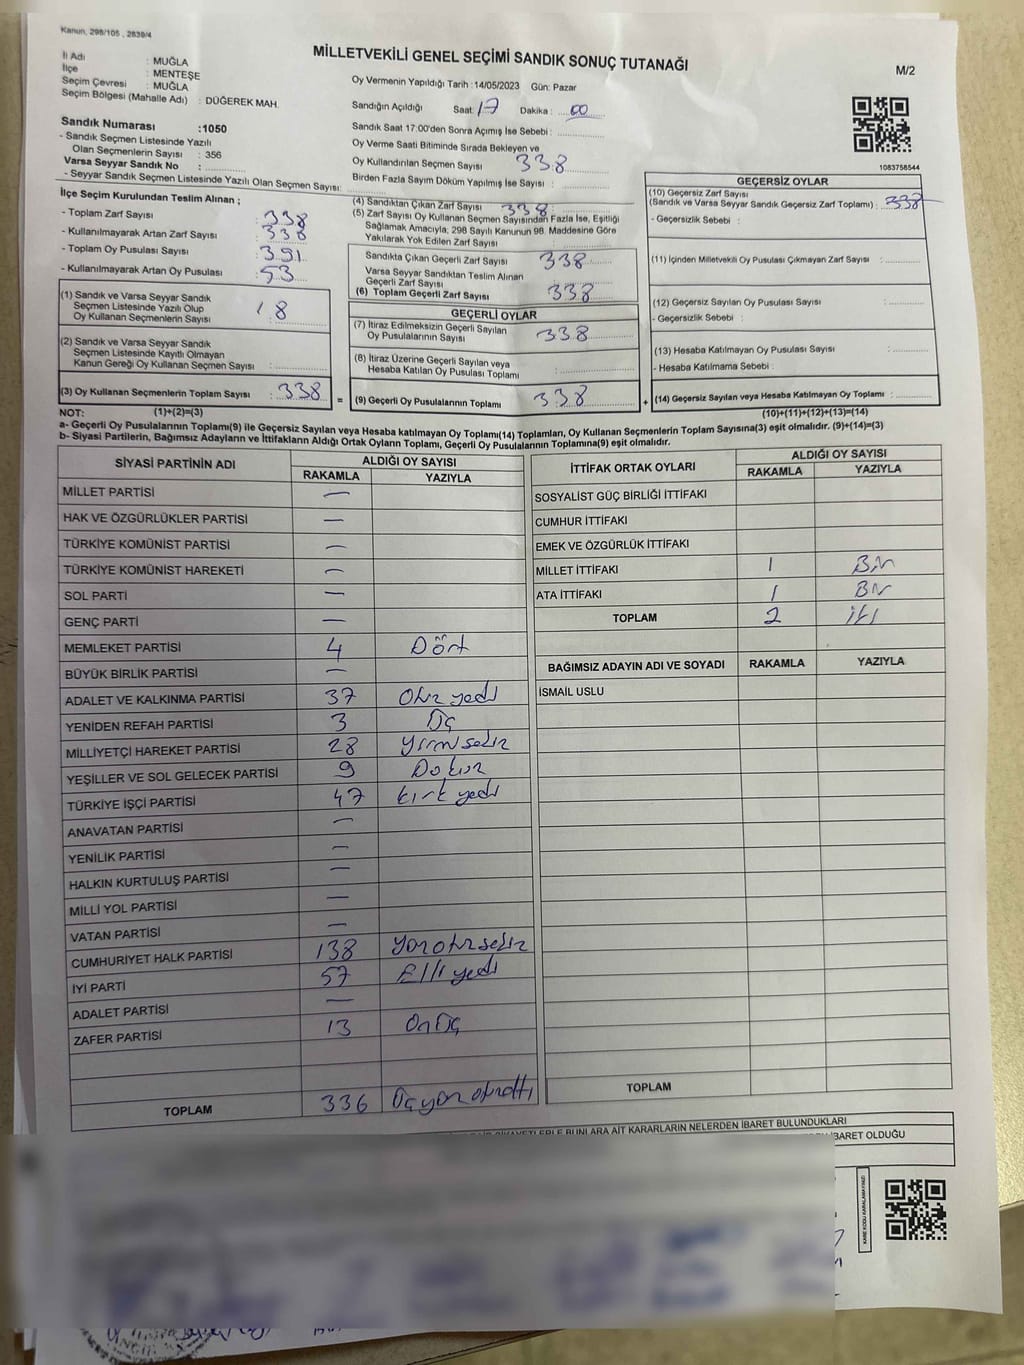 Kanun, 298/105 , 2839/4
MİLLETVEKİLİ GENEL SEÇİMİ SANDIK SONUÇ TUTANAĞI
M/2
İl Adı : MUĞLA
İlçe : MENTEŞE
Seçim Çevresi : MUĞLA
Seçim Bölgesi (Mahalle Adı) : DÜĞEREK MAH.
Sandık Numarası :1050
- Sandık Seçmen Listesinde Yazılı
Olan Seçmenlerin Sayısı : 356
Varsa Seyyar Sandık No :
- Seyyar Sandık Seçmen Listesinde Yazılı Olan Seçmen Sayısı:
Oy Vermenin Yapıldığı Tarih :14/05/2023 Gün: Pazar
Sandığın Açıldığı Saat: 17 Dakika : 00
Sandık Saat 17:00'den Sonra Açımış İse Sebebi :
Oy Verme Saati Bitiminde Sırada Bekleyen ve
Oy Kullandırılan Seçmen Sayısı 338
Birden Fazla Sayım Döküm Yapılmış İse Sayısı :
1083758544
İlçe Seçim Kurulundan Teslim Alınan ;
- Toplam Zarf Sayısı : 338
- Kullanılmayarak Artan Zarf Sayısı : 338
- Toplam Oy Pusulası Sayısı : 391
- Kullanılmayarak Artan Oy Pusulası : 53
(1) Sandık ve Varsa Seyyar Sandık
Seçmen Listesinde Yazılı Olup
Oy Kullanan Seçmenlerin Sayısı : 18
(2) Sandık ve Varsa Seyyar Sandık
Seçmen Listesinde Kayıtlı Olmayan
Kanun Gereği Oy Kullanan Seçmen Sayısı :
(3) Oy Kullanan Seçmenlerin Toplam Sayısı : 338
(4) Sandıktan Çıkan Zarf Sayısı : 338
(5) Zarf Sayısı Oy Kullanan Seçmen Sayısından Fazla İse, Eşitliği
Sağlamak Amacıyla, 298 Sayılı Kanunun 98. Maddesine Göre
Yakılarak Yok Edilen Zarf Sayısı :
Sandıkta Çıkan Geçerli Zarf Sayısı 338
Varsa Seyyar Sandıktan Teslim Alınan
Geçerli Zarf Sayısı
(6) Toplam Geçerli Zarf Sayısı 338
GEÇERLİ OYLAR
(7) İtiraz Edilmeksizin Geçerli Sayılan
Oy Pusulalarının Sayısı : 338
(8) İtiraz Üzerine Geçerli Sayılan veya
Hesaba Katılan Oy Pusulası Toplamı :
= (9) Geçerli Oy Pusulalarının Toplamı : 338
GEÇERSİZ OYLAR
(10) Geçersiz Zarf Sayısı
(Sandık ve Varsa Seyyar Sandık Geçersiz Zarf Toplamı) : 338
- Geçersizlik Sebebi :
(11) İçinden Milletvekili Oy Pusulası Çıkmayan Zarf Sayısı :
(12) Geçersiz Sayılan Oy Pusulası Sayısı :
- Geçersizlik Sebebi :
(13) Hesaba Katılmayan Oy Pusulası Sayısı :
- Hesaba Katılmama Sebebi :
+ (14) Geçersiz Sayılan veya Hesaba Katılmayan Oy Toplamı :
NOT: (1)+(2)=(3)
(10)+(11)+(12)+(13)=(14)
a- Geçerli Oy Pusulalarının Toplamı(9) ile Geçersiz Sayılan veya Hesaba katılmayan Oy Toplamı(14) Toplamları, Oy Kullanan Seçmenlerin Toplam Sayısına(3) eşit olmalıdır. (9)+(14)=(3)
b- Siyasi Partilerin, Bağımsız Adayların ve İttifakların Aldığı Ortak Oyların Toplamı, Geçerli Oy Pusulalarının Toplamına(9) eşit olmalıdır.
SİYASİ PARTİNİN ADI ALDIĞI OY SAYISI
RAKAMLA YAZIYLA
MİLLET PARTİSİ —
HAK VE ÖZGÜRLÜKLER PARTİSİ —
TÜRKİYE KOMÜNİST PARTİSİ —
TÜRKİYE KOMÜNİST HAREKETİ —
SOL PARTİ —
GENÇ PARTİ —
MEMLEKET PARTİSİ 4 Dört
BÜYÜK BİRLİK PARTİSİ —
ADALET VE KALKINMA PARTİSİ 37 Otuz yedi
YENİDEN REFAH PARTİSİ 3 Üç
MİLLİYETÇİ HAREKET PARTİSİ 28 Yirmi sekiz
YEŞİLLER VE SOL GELECEK PARTİSİ 9 Dokuz
TÜRKİYE İŞÇİ PARTİSİ 47 kırk yedi
ANAVATAN PARTİSİ —
YENİLİK PARTİSİ —
HALKIN KURTULUŞ PARTİSİ —
MİLLİ YOL PARTİSİ —
VATAN PARTİSİ —
CUMHURİYET HALK PARTİSİ 138 Yüz otuz sekiz
İYİ PARTİ 57 Elli yedi
ADALET PARTİSİ —
ZAFER PARTİSİ 13 On Üç
TOPLAM 336 Üç yüz otuz altı
İTTİFAK ORTAK OYLARI ALDIĞI OY SAYISI
RAKAMLA YAZIYLA
SOSYALİST GÜÇ BİRLİĞİ İTTİFAKI
CUMHUR İTTİFAKI
EMEK VE ÖZGÜRLÜK İTTİFAKI
MİLLET İTTİFAKI 1 Bir
ATA İTTİFAKI 1 Bir
TOPLAM 2 iki
BAĞIMSIZ ADAYIN ADI VE SOYADI RAKAMLA YAZIYLA
İSMAİL USLU
TOPLAM
BUNLARA AİT KARARLARIN NELERDEN İBARET BULUNDUKLARI
İBARET OLDUĞU